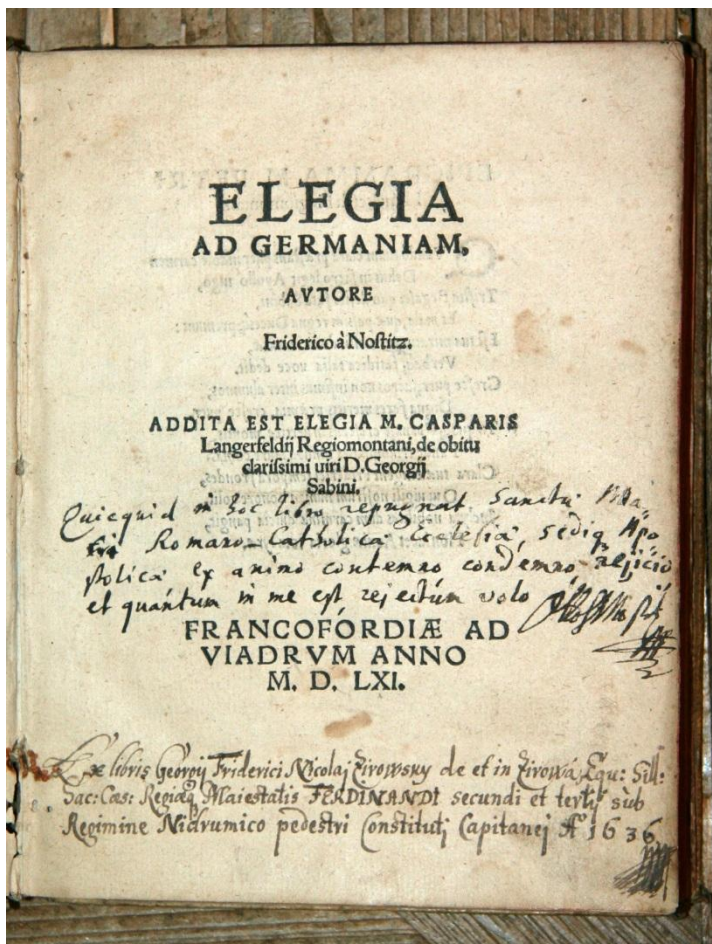 ELEGIA
AD GERMANIAM,
AVTORE
Friderico à Nostitz.
ADDITA EST ELEGIA M. CASPARIS
Langerfeldij Regiomontani, de obitu
clarissimi uiri D. Georgij
Sabini.
Quicquid in hoc libro repugnat Sanctæ
Romano-Catholicæ Ecclesiæ, sediq Apo
stolicæ ex animo contemno condemno rejicio
et quantum in me est rejectum volo
FRANCOFORDIÆ AD
VIADRVM ANNO
M. D. LXI.
Ex libris Georgij Friderici Nicolaj Zirowsky de et in Zirowá, Equ: Sill:
Sac: Cæs: Regiæq Maiestatis FERDINANDI secundi et tertij sub
Regimine Nidrumico pedestri Constitutj Capitanej Aº 1636